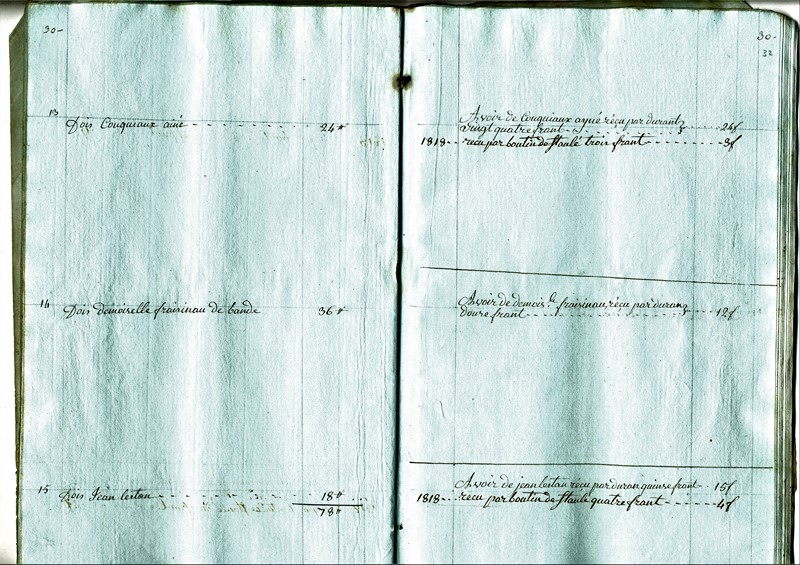 30-
13
Dois Couquiaux ainé 24 tt
14
Dois demoiselle fraisinau de bande 36 tt
15
Dois Jean lestan 18 tt
78 tt
30-
32
Avoir de Couquiaux ayné reçu par durant
vingt quatre frant 24f
1818 recu par boutin de Staulé trois frant 3f
Avoir de demois.le fraisinau, reçu par durang
douse frant 12f
Avoir de jean lestan recu par duran quinse frant 15f
1818 recu par boutin de Staulé quatre frant 4f